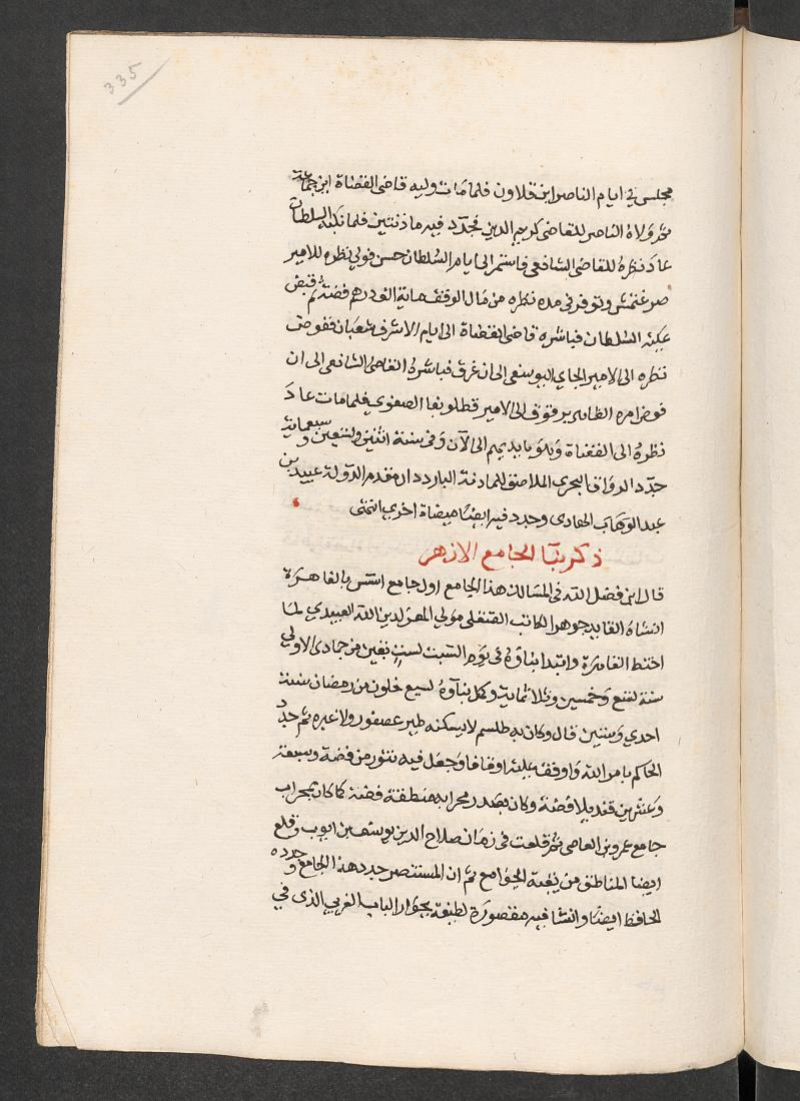 335
مجلس في ايام الناصر ابن قلاون فلما مات وليه قاضى القضاة ابن جماعة
ثم ولاه الناصر للقاضى كريم الدين فجدد فيه ماذنتين فلما نكبه السلطان
عاد نظره للقاضى الشافعى فاستمر الى ايام السلطان حسن فولى نظره للامير
صرغتمش وتوفر في مده نظره من مال الوقف ماية الف درهم فضة ثم قبض
عليه السلطان فباشره قاضى القضاة الى ايام الاشرف شعبان ففوض
نظره الى الامير الجاي اليوسفى الى ان غرق فباشره القاضى الشافعى الى ان
فوض امره الظاهر برقوق الى الامير قطلوبغا الصفوي فلما مات عاد
نظره الى القضاة وهو بايديهم الى الآن وفى سنة اثنين وتسعين وسبعماية
جدد الرواق البحري الملاصق للماذنة البازدار مقدم الدولة عبيد بن
عبد الوهاب الهادى وجدد فيه ايضا ميضاة اخري انتهى
ذكر بنآ الجامع الازهر
قال ابن فضل الله فى المسالك هذا الجامع اول جامع اسس بالقاهرة
انشاه القايد جوهر الكاتب الصقلى مولي المعز لدين الله العبيدي لما
اختط القاهرة وابتدا بناؤه فى يوم السبت لست بقين من جمادى الاولي
سنة تسع وخمسين وثلاثماية وكمل بنآوه لسبع خلون من رمضان سنة
احدي وستين قال وكان به طلسم لا يسكنه طير عصفور ولا غيره ثم جدد
الحاكم بامر الله واوقف عليه اوقافا وجعل فيه تنور من فضة وسبعة
وعشرين قنديلا فضة وكان بصدر محرابه منطقة فضة كما كان بمحراب
جامع عمرو بن العاصى ثم قلعت فى زمان صلاح الدين يوسف بن ايوب وقلع
ايضا المناطق من بقية الجوامع ثم ان المستنصر جدد هذا الجامع وجدده
الحافظ ايضا وانشا فيه مقصورة لطيفة بجوار الباب الغربي الذى في